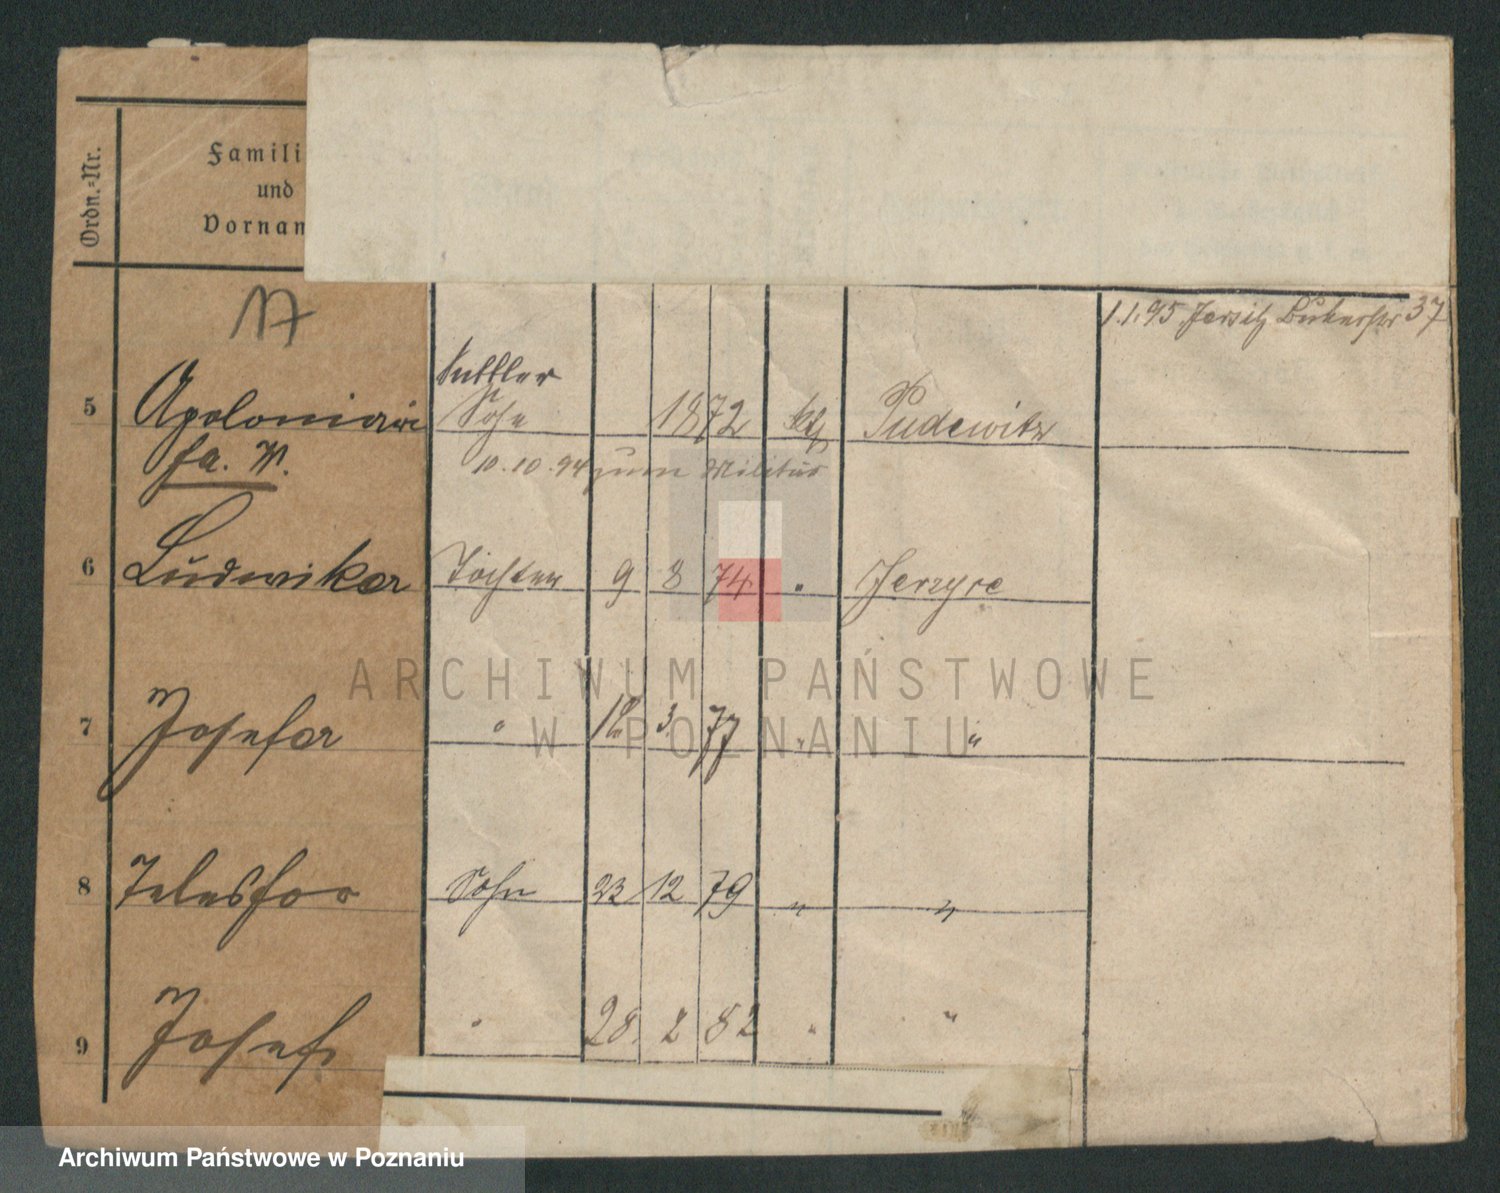 Ordn.-Nr.
Famili
und
Vornam
1.1.95 Jersitz 37
5 Apolonia Sohn 1872 kth Pudewitz
fa. N.
10.10.94 zum Militär
6 Ludwika Tochter 9 8 74 " Jerzyce
ARCHIWUM PAŃSTWOWE
W POZNANIU
7 Josefa " 12 3 77 " "
8 Telesfor Sohn 23 12 79 " "
9 Josef " 28 2 82 " "
Archiwum Państwowe w Poznaniu